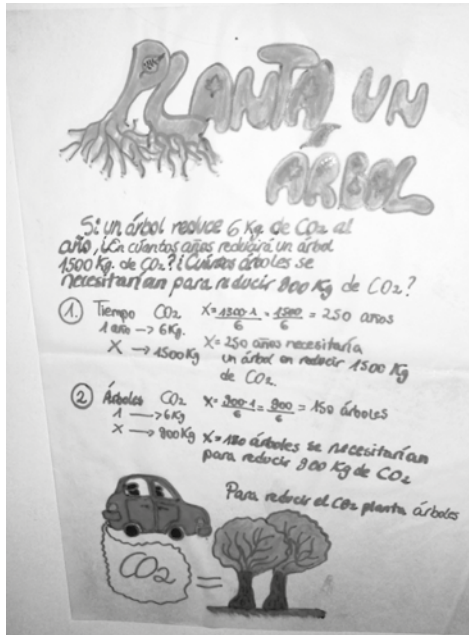 PLANTA UN
ÁRBOL
Si un árbol reduce 6 Kg. de CO2 al
año, ¿En cuántos años reducirá un árbol
1500 Kg. de CO2? ¿Cuántos árboles se
necesitarían para reducir 900 Kg de CO2?
1. Tiempo CO2 X = 1500·1 / 6 = 1500 / 6 = 250 años
1 año → 6Kg.
X → 1500 Kg
X = 250 años necesitaría
un árbol en reducir 1500 Kg
de CO2.
2 Árboles CO2 X = 900·1 / 6 = 900 / 6 = 150 árboles
1 → 6Kg
X → 900 Kg X = 150 árboles se necesitarían
para reducir 900 Kg de CO2
Para reducir el CO2 planta árboles
CO2 =